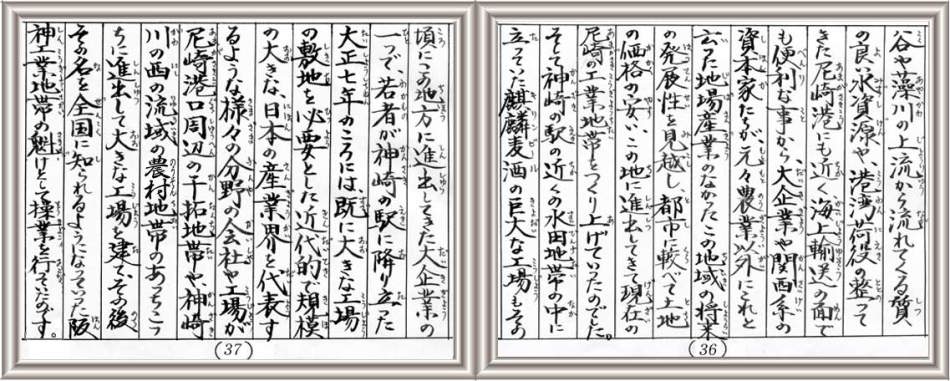 谷や藻川の上流から流れてくる質
の良い水資源や、港湾荷役の整って
きた尼崎港にも近く、海上輸送の面で
も便利な事から、大企業や関西系の
資本家たちが、元々農業以外にこれと
云った地場産業のなかったこの地域の将来
の発展性を見越し、都市に較べて土地
の価格の安い、この地に進出してきて現在の
尼崎の工業地帯をつくり上げていったのでした。
そして神崎の駅の近くの水田地帯の中に
立っていた麒麟麦酒の巨大な工場もその
(36)
頃にこの地方に進出してきた大企業の
一つで、若者が神崎の駅に降り立った
大正七年のころには、既に大きな工場
の敷地を必要とした近代的で規模
の大きな、日本の産業界を代表す
るような様々の分野の会社や工場が
尼崎港口周辺の干拓地帯や神崎
川の西の流域の農村地帯のあっちこっ
ちに進出して大きな工場を建て、その後
その名を全国に知られるようになっていった阪
神工業地帯の魁けとして操業を行そいたのです。
(37)